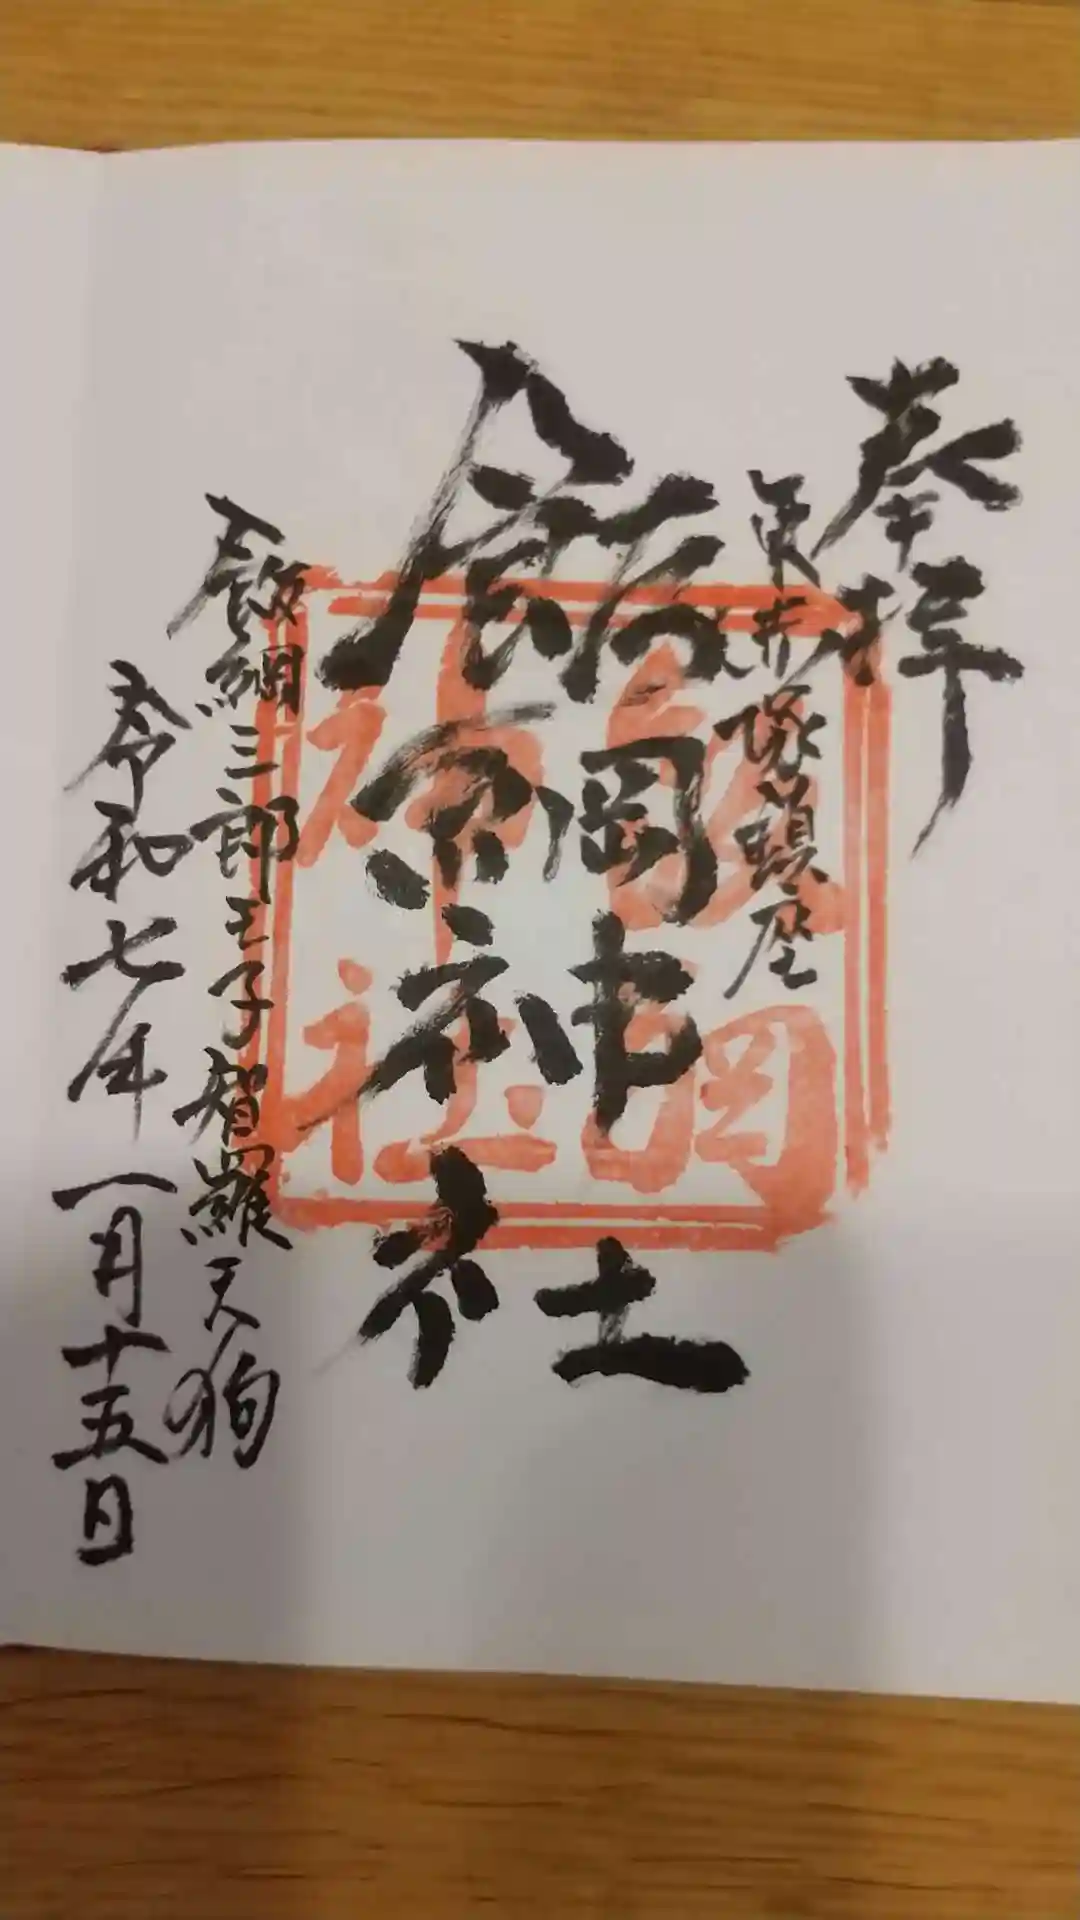 奉拝
東井塚頭座
飯綱神社
飯綱三郎王子智羅天狗
令和七年一月十五日
飯綱
神社